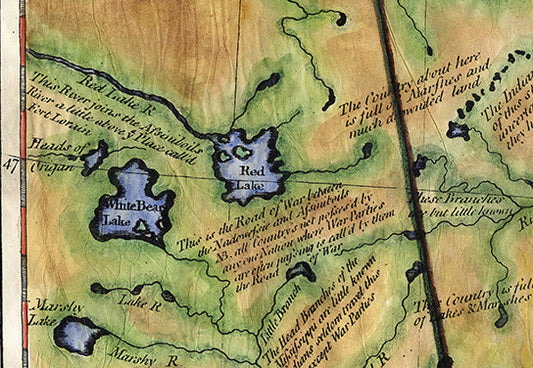 Red Lake R
This River joins the Assiniboils
River a little above ye Place call'd
Fort Lorain
Heads of
Origan
47
Red
Lake
White Bear
Lake
The Country about here
is full of Marshes and
much drownded land
The Indian
of this
they h
These Branches
but little known
This is the Road of War between
the Nadowessie and Assiniboils
NB. all Countrys not posess'd by
any one Nation where War Parties
are often passing is call'd by them
the Road of War
Lake R
Little Branch
The Head Branches of the
Missisippi are little known
dians seldom travel this
except War Parties
This Country is full
of Lakes & Marshes
Marshy
Lake
Marshy R
R